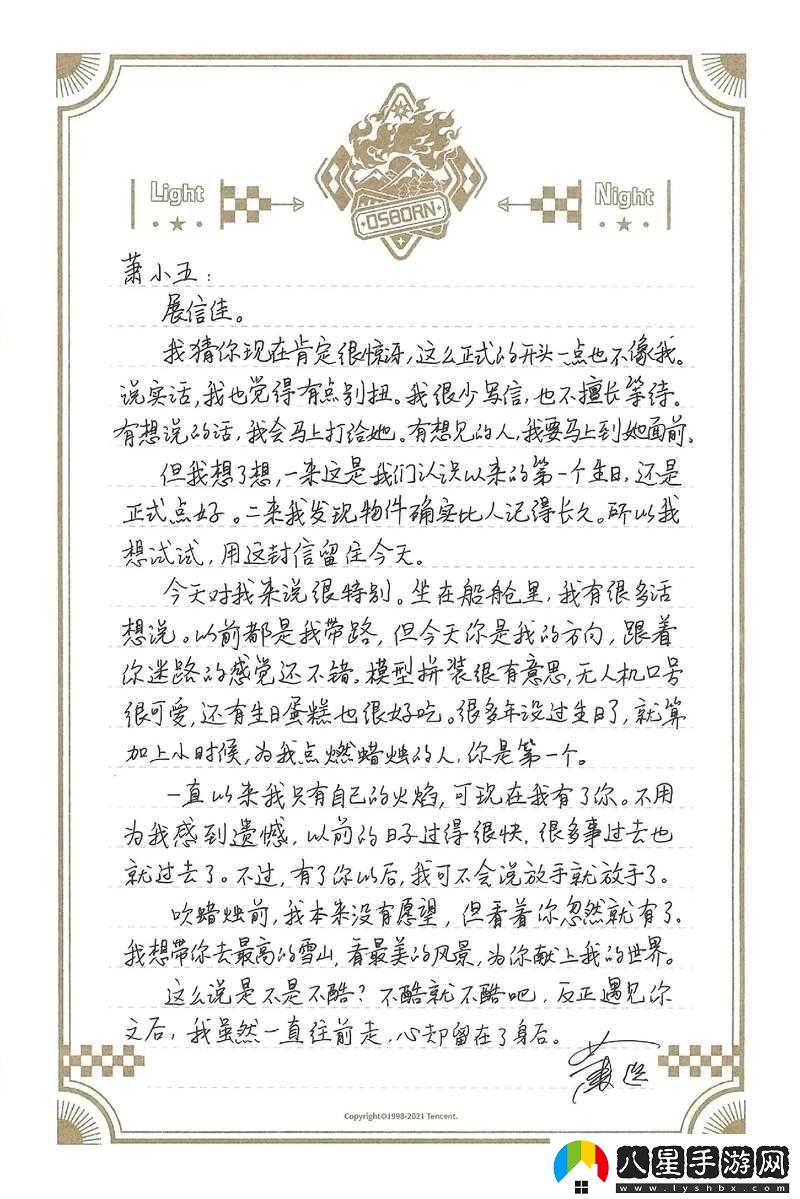 Light
Night
OSBORN
萧小五：
展信佳。
我猜你现在肯定很惊讶，这么正式的开头一点也不像我。
说实话，我也觉得有点别扭。我很少写信，也不擅长等待。
有想说的话，我会马上打给她。有想见的人，我要马上到她面前。
但我想了想，一来这是我们认识以来的第一个生日，还是
正式点好。二来我发现物件确实比人记得长久。所以我
想试试，用这封信留住今天。
今天对我来说很特别。坐在船舱里，我有很多话
想说。以前都是我带路，但今天你是我的方向，跟着
你迷路的感觉还不错。模型拼装很有意思，无人机口号
很可爱，还有生日蛋糕也很好吃。很多年没过生日了，就算
加上小时候，为我点燃蜡烛的人，你是第一个。
一直以来我只有自己的火焰，可现在我有了你。不用
为我感到遗憾，以前的日子过得很快，很多事过去也
就过去了。不过，有了你以后，我可不会说放手就放手了。
吹蜡烛前，我本来没有愿望，但看着你忽然就有了。
我想带你去最高的雪山，看最美的风景，为你献上我的世界。
这么说是不是不酷？不酷就不酷吧，反正遇见你
之后，我虽然一直往前走，心却留在了身后。
萧逸
Copyright©1998-2021 Tencent.
八星手游网
www.lyshbx.com